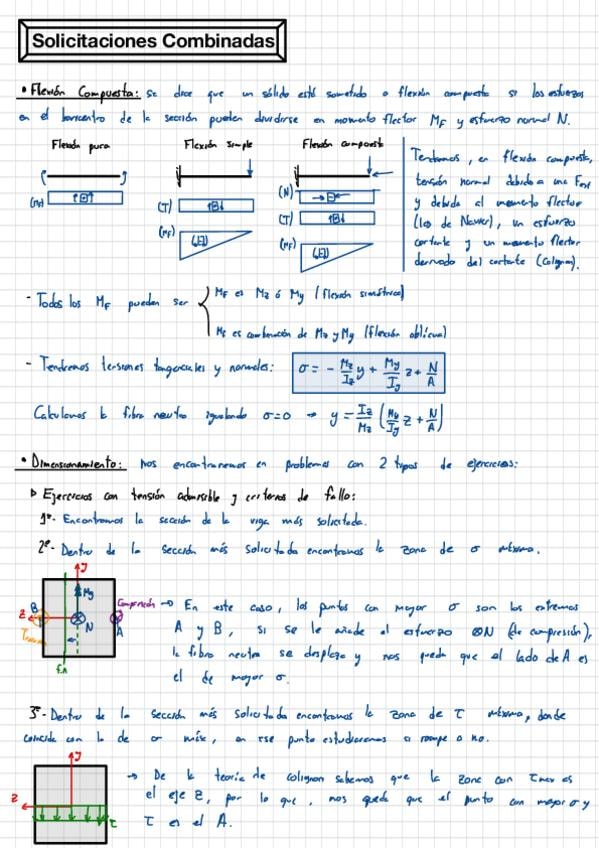 Solicitaciones Combinadas
• Flexión Compuesta: Se dice que un sólido está sometido a flexión compuesta si los esfuerzos
en el baricentro de la sección pueden dividirse en momento flector MF y esfuerzo normal N.
Flexión pura Flexión simple Flexión compuesta
(MF)
(T)
(MF)
(N)
(T)
(MF)
Tendremos, en flexión compuesta,
tensión normal debido a una
y debida al momento flector
(ley de Navier), un esfuerzo
cortante y un momento flector
derivado del cortante (Colignon).
- Todos los MF pueden ser
MF es Mz ó My (flexión simétrica)
MF es combinación de Mz y My (flexión oblicua)
- Tendremos tensiones tangenciales y normales: σ = - Mz/Iz y + My/Iy z + N/A
Calculamos la fibra neutra igualando σ=0 → y = Iz/Mz (My/Iy z + N/A)
• Dimensionamiento: Nos encontraremos en problemas con 2 tipos de ejercicios:
▷ Ejercicios con tensión admisible y criterios de fallo:
1º- Encontramos la sección de la viga más solicitada.
2º- Dentro de la sección más solicitada encontramos la zona de σ máxima.
y
My
B
z
N
A
Compresión
f.n
→ En este caso, los puntos con mayor σ son los extremos
A y B, si se le añade el esfuerzo ⊗N (de compresión),
la fibra neutra se desplaza y nos queda que el lado de A es
el de mayor σ.
3º- Dentro de la sección más solicitada encontramos la zona de τ máxima, donde
coincida con la de σ máx, en ese punto estudiaremos si rompe o no.
y
z
τ
→ De la teoría de colignon sabemos que la zona con τmax es
el eje z, por lo que, nos queda que el punto con mayor σ y
τ es el A.